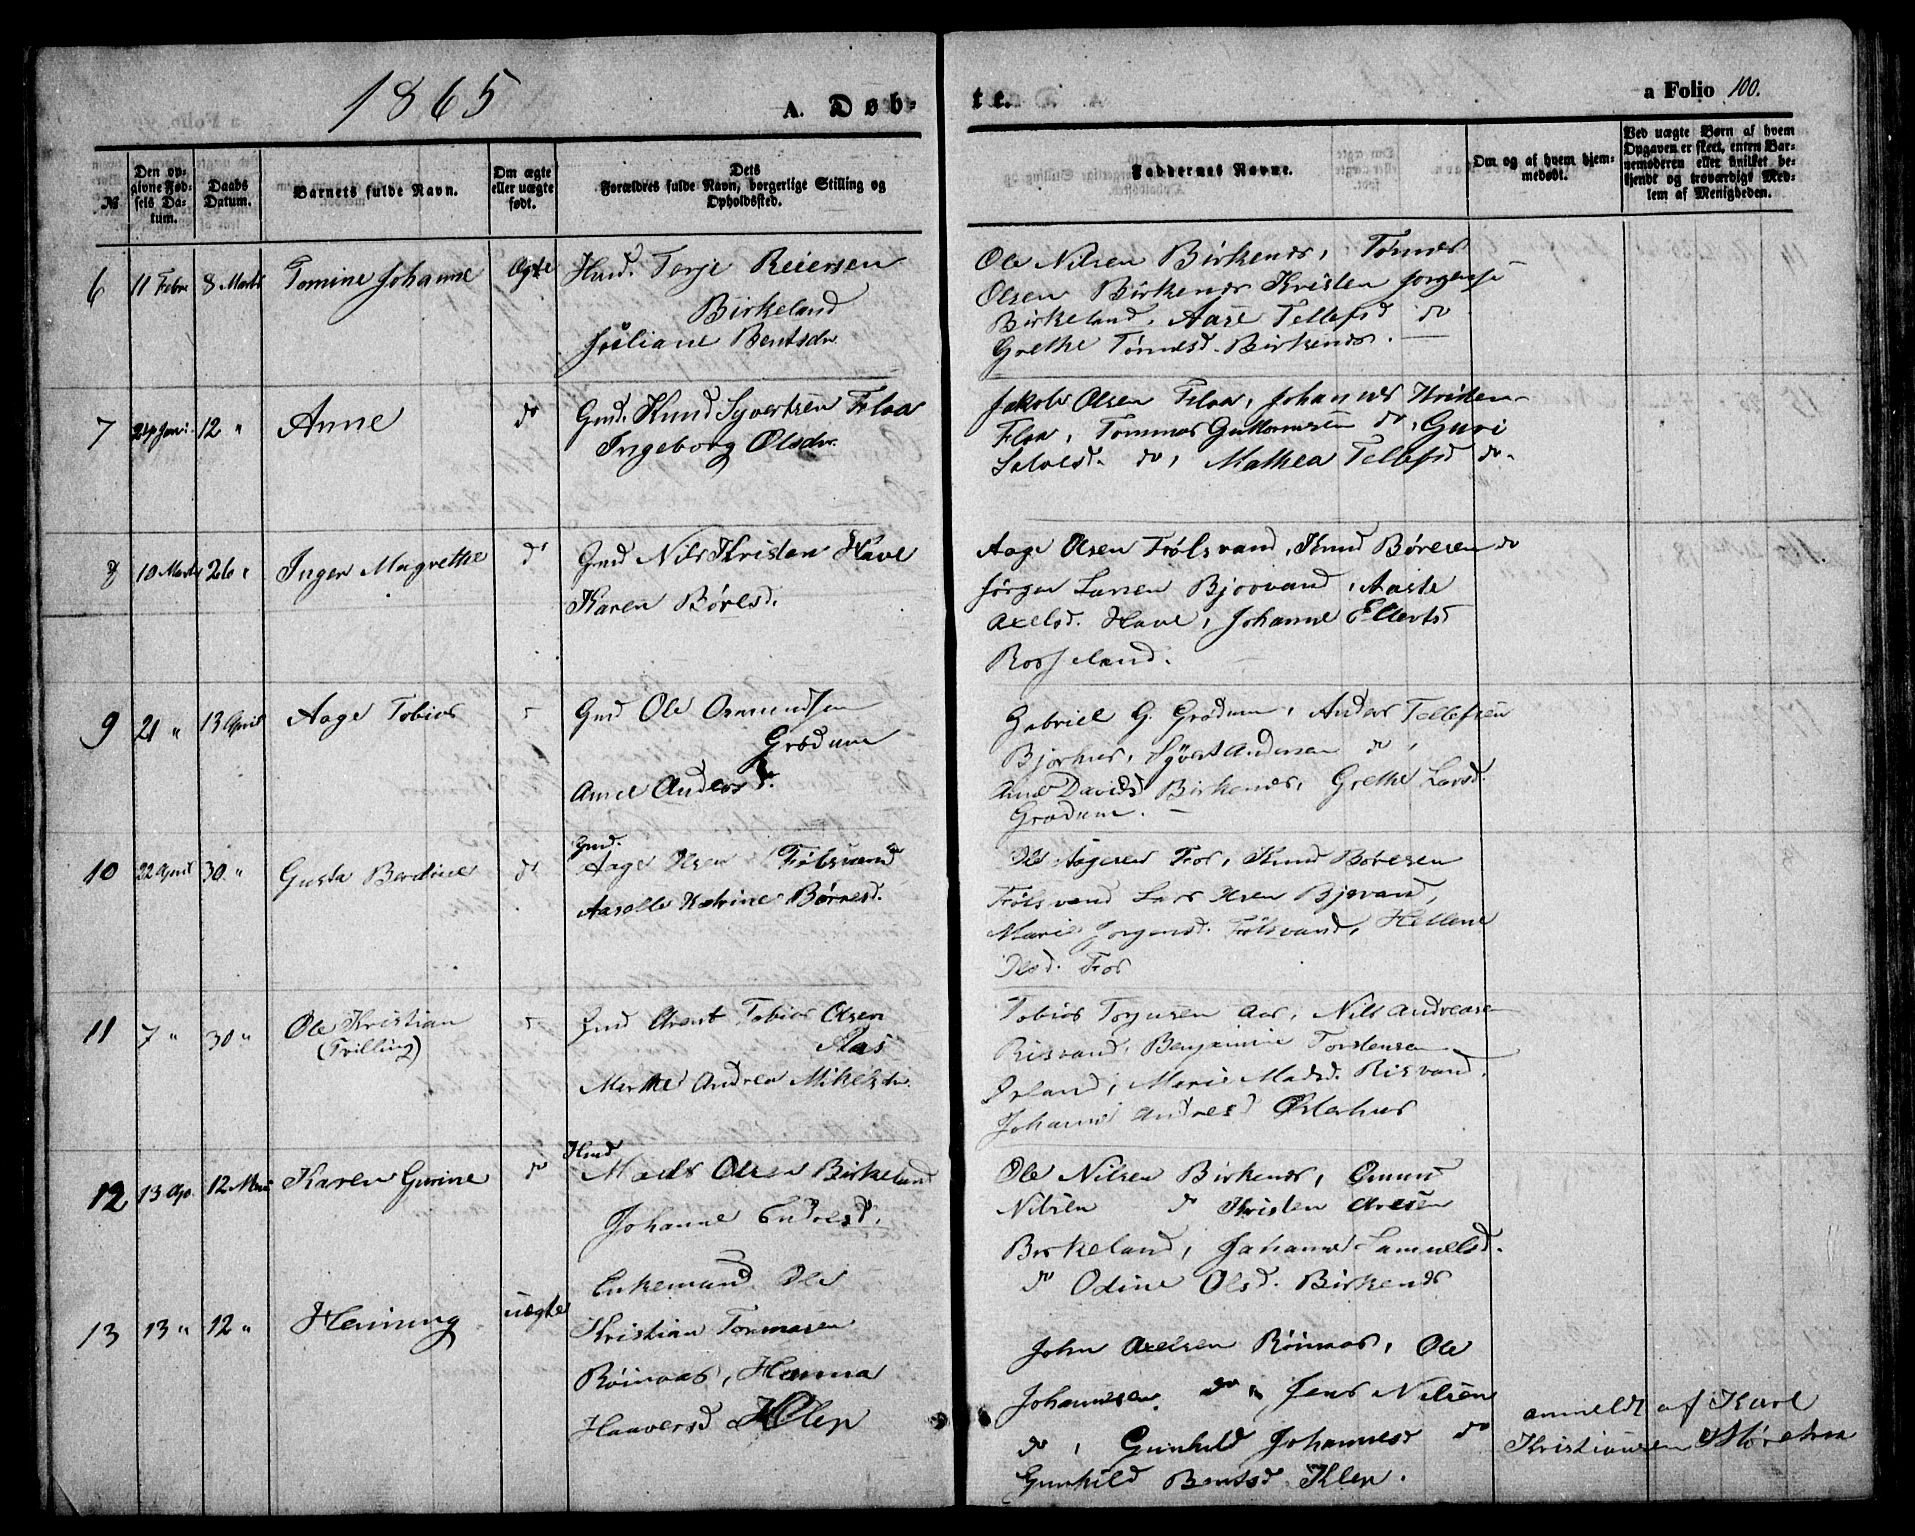 1865
A. Døb-
te.
a Folio 100.
№
Den op-
givne Fød-
sels Da-
tum.
Daabs
Datum.
Barnets fulde Navn.
Om ægte
eller uægte
født.
Dets
Forældres fulde Navn, borgerlige Stilling og
Opholdssted.
Faddernes Navne.
Om og af hvem hjem-
medøbt.
Ved uægte Børn af hvem
Opgaven er skeet, enten Bar-
nemoderen eller hvilket be-
kjendt og troværdigt Med-
lem af Menigheden.
6 11 Febr 8 Marts Tomine Johanne Ægte Husd. Terje Reiersen
Birkeland
Juliane Bentsdr.
Ole Nilsen Birkenes, Tønnes
Olsen Birkenes Kristen Jørgens
Birkeland, Aase Tellefsd do
Grethe Tønnesd. Birkenes.
7 24 Jan 12 " Anne do Gmd. Knud Syvertsen Flaa
Ingeborg Olsdr.
Jakob Olsen Flaa, Johannes Kristen
Flaa, Tommas Guttormsen do, Guri
Salvesd. do, Mathea Tellefsd do
8 10 Marts 26 " Inger Magrethe do Gmd Nils Kristen Have
Karen Børesd.
Aage Olsen Følsvand, Knud Børesen do
Jørgen Larsen Bjorvand, Aaste
Axelsd. Have, Johanne Ellevts
Rosseland.
9 21 " 13 April Aage Tobias Gmd Ole Osmundsen
Grødum
Anne Andersd.
Gabriel G. Grødum, Anders Tellefsen
Bjorhus, Syvert Andersen do,
Anne Davidsd Birkenes, Grethe Larsd.
Grødum.
10 22 April 30 " Gusta Berdine do Gmd.
Aage Olsen Følsvand
Aaselle Katrine Børresd.
Ole Aagesen Fros, Knud Børesen
Følsvand Lars Olsen Bjovand,
Marie Jorgensd. Følsvand, Hellene
Olsd. Fros
11 7 " 30 " Ole Kristian
(Tvilling)
Gmd Arent Tobias Olsen
Aas
Marthe Andrea Mikelsdr.
Tobias Torjusen Aas, Nils Andreasen
Risvand, Benjamin Torstensen
Marie Madsd. Risvand,
Johanne Andresd Østerhus
12 13 Ap. 12 Mai Karen Gurine do Husd
Mads Olsen Birkeland
Johanne Endresd.
Ole Nilsen Birkenes, Omund
Nilsen do Kristen Aresen
Birkeland, Johanne Samuelsd.
do Odine Olsd. Birkenes
13 13 " 12 " Henning uægte Enkemand Ole
Kristian Tommasen
Røinaas, Hanna
Haaversd Klep
John Axelsen Røinaas, Ole
Johannesen do, Jens Nilsen
do, Gunhild Johannesd do
Gunhild Bentsd Klep.
anmeldt af Karl
Kristiansen Mørehaa